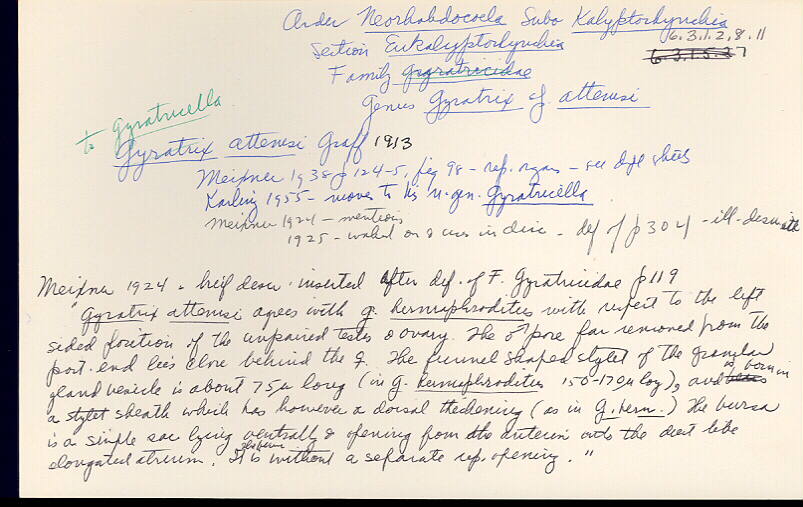 Order Neorhabdocoela Subo Kalyptorhynchia
6.3.1.2.8.11
Section Eukalyptorhynchia
6.3.1.5.27
Family Gyratricidae
Genus Gyratrix of attemsi
to Gyratricella
Gyratrix attemsi Graff 1913
Meixner 1938 p 124-5, fig 98 - rep. organs - see dupl sheets
Karling 1955 - moves to his n. gen. Gyratricella
Meixner 1924 - mentions
1925 - in disc. - def of p 304 - ill. desc.
Meixner 1924 - brief descr. inserted after def. of F. Gyratricidae p 119
"Gyratrix attemsi agrees with g. hermaphroditus with respect to the left
sided position of the unpaired testes & ovary. The ♂ pore far removed from the
post. end lies close behind the ♀. The funnel shaped stylet of the granular
gland vesicle is about 75µ long (in g. hermaphroditus 150-170µ long), and is born in
a stylet sheath which has however a dorsal thickening (as in G. herm.) The bursa
is a simple sac lying ventrally & opening from the anterior into the duct like
elongated atrium. It is without a separate rep. opening."